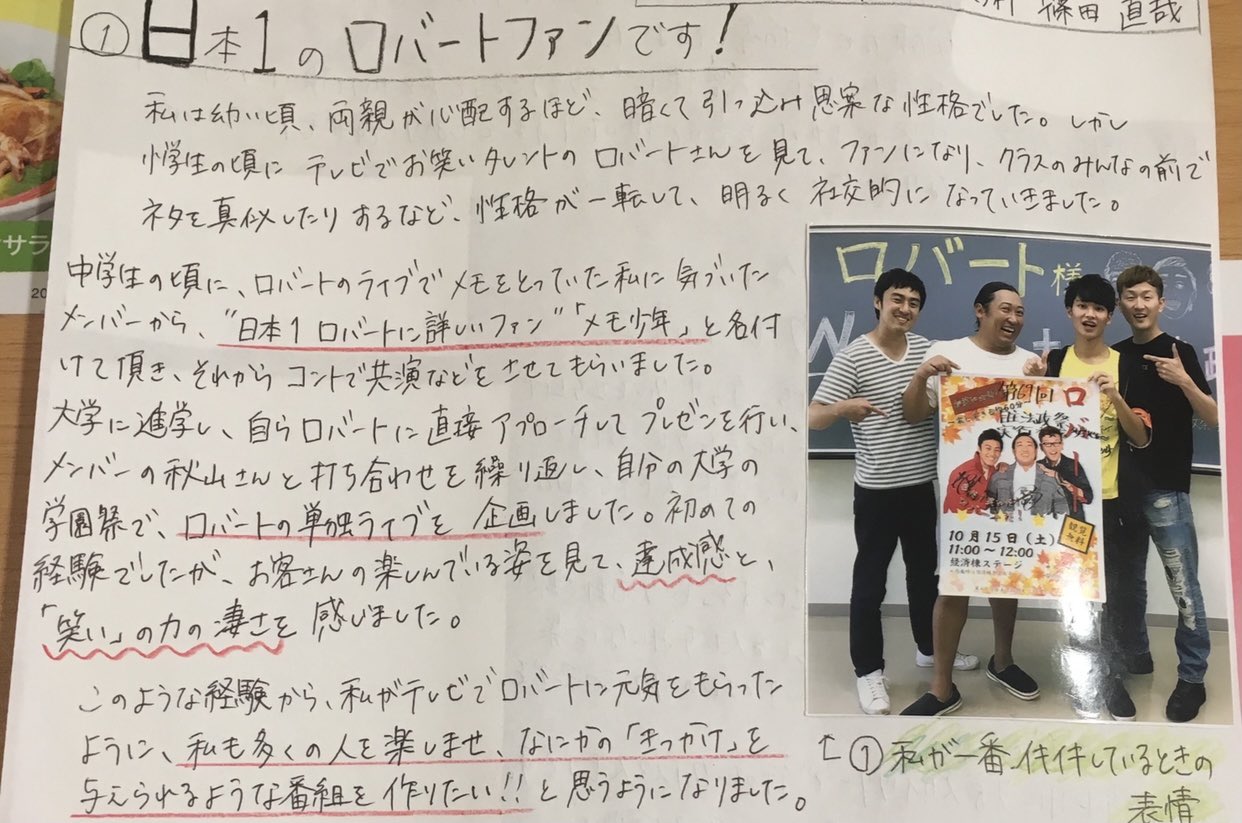 篠田 直哉
① 日本1のロバートファンです!
私は幼い頃、両親が心配するほど、暗くて引っ込み思案な性格でした。しかし
小学生の頃にテレビでお笑いタレントのロバートさんを見て、ファンになり、クラスのみんなの前で
ネタを真似したりするなど、性格が一転して、明るく社交的になっていきました。
中学生の頃に、ロバートのライブでメモをとっていた私に気づいた
メンバーから、"日本1ロバートに詳しいファン"「メモ少年」と名付
けて頂き、それからコントで共演などをさせてもらいました。
大学に進学し、自らロバートに直接アプローチしてプレゼンを行い、
メンバーの秋山さんと打ち合わせを繰り返し、自分の大学の
学園祭で、ロバートの単独ライブを企画しました。初めての
経験でしたが、お客さんの楽しんでいる姿を見て、達成感と、
「笑い」の力の凄さを感じました。
このような経験から、私がテレビでロバートに元気をもらった
ように、私も多くの人を楽しませ、なにかの「きっかけ」を
与えられるような番組を作りたい!!と思うようになりました。
ロバート様
第67回
観覧
無料
10月15日(土)
11:00〜12:00
経済棟ステージ
↑①私が一番イキイキしているときの
表情
サラ
20